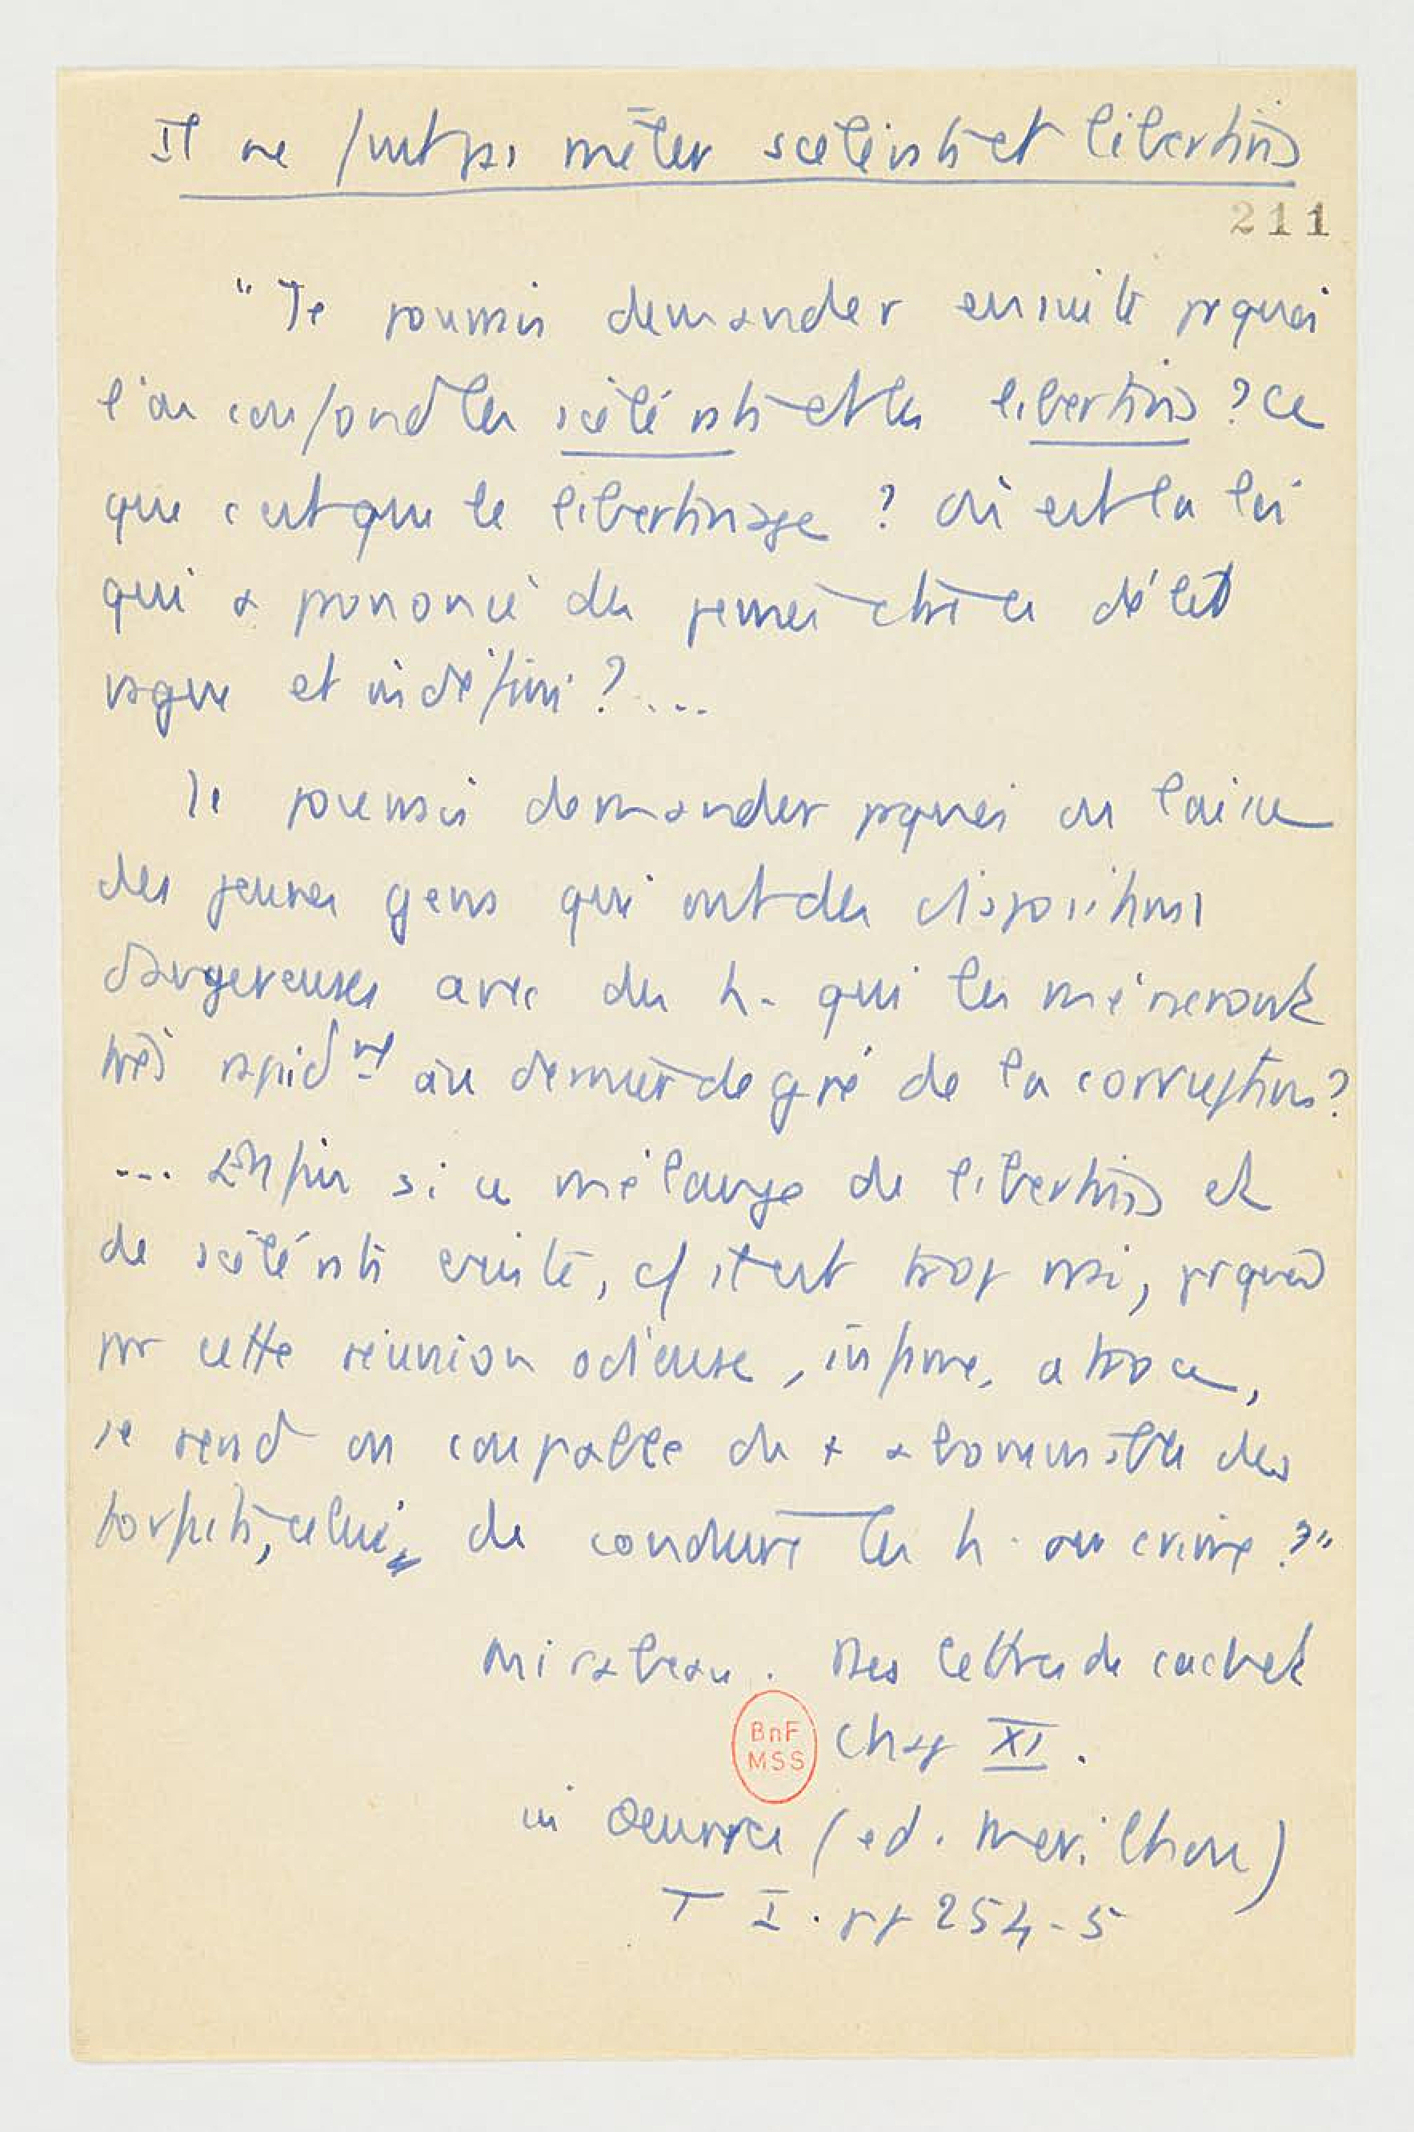 Il ne faut pas mêler scélérats et libertins
211
"Je pourrais demander ensuite prquoi
l'on confond les scélérats et les libertins ? Ce
que c'est que le libertinage ? Où est la loi
qui a prononcé des peines ctre ce délit
vague et indéfini ?....
Je pourrais demander pquoi on laisse
des jeunes gens qui ont des dispositions
dangereuses avec des h. qui les mèneront
très rapidmt au dernier degré de la corruption ?
... Enfin si ce mélange de libertins et
de scélérats existe, cf il est trop vrai, prquoi
pr cette réunion odieuse, infâme, atroce,
se rend on coupable du + abominable des
forfaits, celui de conduire les h. au crime ?"
Mirabeau. Des lettres de cachet
BnF
MSS
Chap XI.
in Oeuvres (ed. Merilhou)
T I. pp 254-5